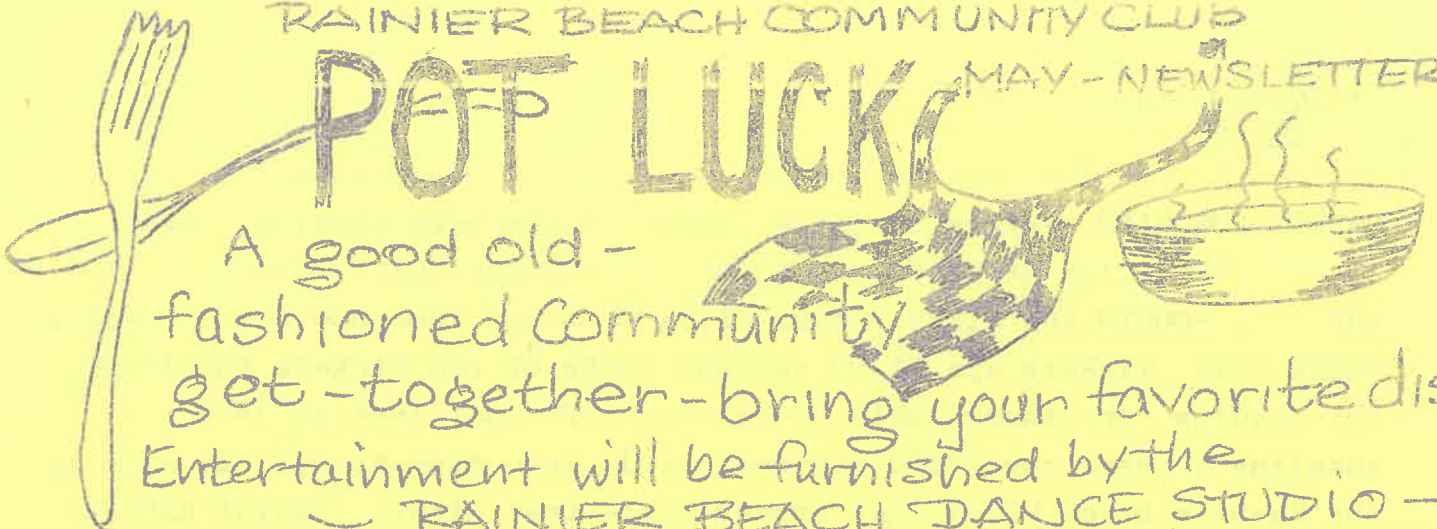 RAINIER BEACH COMMUNITY CLUB
POT LUCK
MAY - NEWSLETTER
A good old -
fashioned Community
get - together - bring your favorite dis
Entertainment will be furnished by the
RAINIER BEACH DANCE STUDIO -